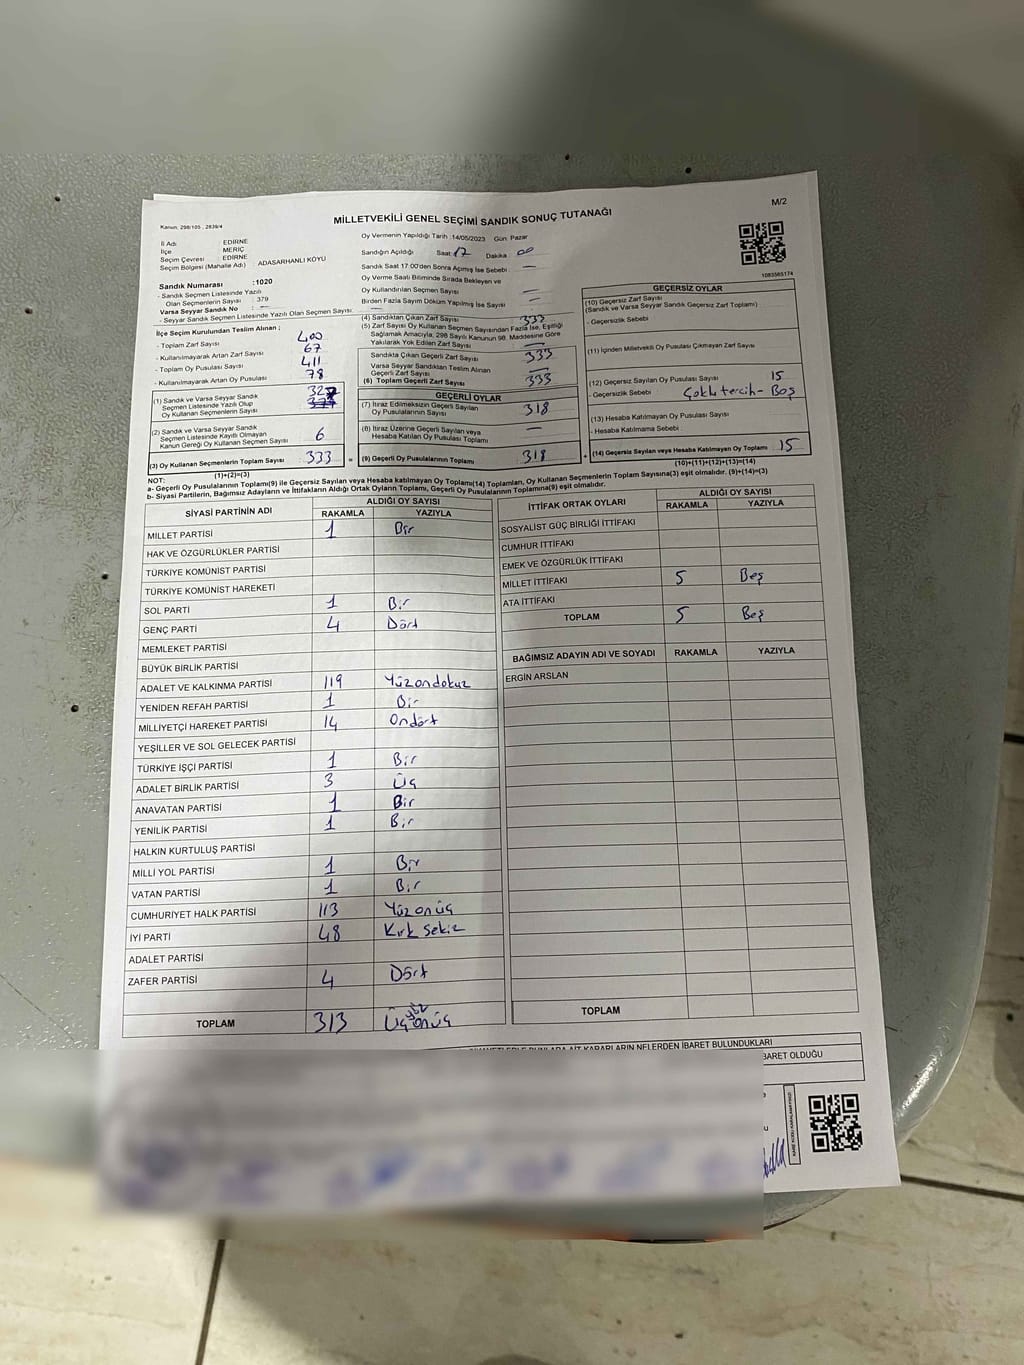 M/2
Kanun, 298/105 , 2839/4
MİLLETVEKİLİ GENEL SEÇİMİ SANDIK SONUÇ TUTANAĞI
İl Adı : EDİRNE
İlçe : MERİÇ
Seçim Çevresi : EDİRNE
Seçim Bölgesi (Mahalle Adı) : ADASARHANLI KÖYÜ
Sandık Numarası :1020
- Sandık Seçmen Listesinde Yazılı
Olan Seçmenlerin Sayısı : 379
Varsa Seyyar Sandık No : —
- Seyyar Sandık Seçmen Listesinde Yazılı Olan Seçmen Sayısı:
İlçe Seçim Kurulundan Teslim Alınan ;
- Toplam Zarf Sayısı 400
- Kullanılmayarak Artan Zarf Sayısı 67
- Toplam Oy Pusulası Sayısı 411
- Kullanılmayarak Artan Oy Pusulası 78
(1) Sandık ve Varsa Seyyar Sandık
Seçmen Listesinde Yazılı Olup
Oy Kullanan Seçmenlerin Sayısı 327
(2) Sandık ve Varsa Seyyar Sandık
Seçmen Listesinde Kayıtlı Olmayan
Kanun Gereği Oy Kullanan Seçmen Sayısı 6
(3) Oy Kullanan Seçmenlerin Toplam Sayısı 333
(1)+(2)=(3)
Oy Vermenin Yapıldığı Tarih :14/05/2023 Gün: Pazar
Sandığın Açıldığı Saat 17 Dakika 00
Sandık Saat 17:00'den Sonra Açılmış İse Sebebi : —
Oy Verme Saati Bitiminde Sırada Bekleyen ve
Oy Kullandırılan Seçmen Sayısı —
Birden Fazla Sayım Döküm Yapılmış İse Sayısı —
(4) Sandıktan Çıkan Zarf Sayısı 333
(5) Zarf Sayısı Oy Kullanan Seçmen Sayısından Fazla İse, Eşitliği
Sağlamak Amacıyla; 298 Sayılı Kanunun 98. Maddesine Göre
Yakılarak Yok Edilen Zarf Sayısı —
Sandıkta Çıkan Geçerli Zarf Sayısı 333
Varsa Seyyar Sandıktan Teslim Alınan
Geçerli Zarf Sayısı —
(6) Toplam Geçerli Zarf Sayısı 333
GEÇERLİ OYLAR
(7) İtiraz Edilmeksizin Geçerli Sayılan
Oy Pusulalarının Sayısı 318
(8) İtiraz Üzerine Geçerli Sayılan veya
Hesaba Katılan Oy Pusulası Toplamı —
= (9) Geçerli Oy Pusulalarının Toplamı 318
1083565174
GEÇERSİZ OYLAR
(10) Geçersiz Zarf Sayısı
(Sandık ve Varsa Seyyar Sandık Geçersiz Zarf Toplamı)
- Geçersizlik Sebebi :
(11) İçinden Milletvekili Oy Pusulası Çıkmayan Zarf Sayısı
(12) Geçersiz Sayılan Oy Pusulası Sayısı 15
- Geçersizlik Sebebi : Çoklu tercih - Boş
(13) Hesaba Katılmayan Oy Pusulası Sayısı
- Hesaba Katılmama Sebebi :
+ (14) Geçersiz Sayılan veya Hesaba Katılmayan Oy Toplamı 15
(10)+(11)+(12)+(13)=(14)
NOT:
a- Geçerli Oy Pusulalarının Toplamı(9) ile Geçersiz Sayılan veya Hesaba Katılmayan Oy Toplamı(14) Toplamları, Oy Kullanan Seçmenlerin Toplam Sayısına(3) eşit olmalıdır. (9)+(14)=(3)
b- Siyasi Partilerin, Bağımsız Adayların ve İttifakların Aldığı Ortak Oyların Toplamı, Geçerli Oy Pusulalarının Toplamına(9) eşit olmalıdır.
SİYASİ PARTİNİN ADI ALDIĞI OY SAYISI
RAKAMLA YAZIYLA
MİLLET PARTİSİ 1 Bir
HAK VE ÖZGÜRLÜKLER PARTİSİ
TÜRKİYE KOMÜNİST PARTİSİ
TÜRKİYE KOMÜNİST HAREKETİ
SOL PARTİ 1 Bir
GENÇ PARTİ 4 Dört
MEMLEKET PARTİSİ
BÜYÜK BİRLİK PARTİSİ
ADALET VE KALKINMA PARTİSİ 119 Yüzondokuz
YENİDEN REFAH PARTİSİ 1 Bir
MİLLİYETÇİ HAREKET PARTİSİ 14 Ondört
YEŞİLLER VE SOL GELECEK PARTİSİ
TÜRKİYE İŞÇİ PARTİSİ 1 Bir
ADALET BİRLİK PARTİSİ 3 Üç
ANAVATAN PARTİSİ 1 Bir
YENİLİK PARTİSİ 1 Bir
HALKIN KURTULUŞ PARTİSİ
MİLLİ YOL PARTİSİ 1 Bir
VATAN PARTİSİ 1 Bir
CUMHURİYET HALK PARTİSİ 113 Yüzonüç
İYİ PARTİ 48 Kırk sekiz
ADALET PARTİSİ
ZAFER PARTİSİ 4 Dört
TOPLAM 313 Üçyüzonüç
İTTİFAK ORTAK OYLARI ALDIĞI OY SAYISI
RAKAMLA YAZIYLA
SOSYALİST GÜÇ BİRLİĞİ İTTİFAKI
CUMHUR İTTİFAKI
EMEK VE ÖZGÜRLÜK İTTİFAKI
MİLLET İTTİFAKI 5 Beş
ATA İTTİFAKI
TOPLAM 5 Beş
BAĞIMSIZ ADAYIN ADI VE SOYADI RAKAMLA YAZIYLA
ERGİN ARSLAN
TOPLAM
KARARLARIN NELERDEN İBARET BULUNDUKLARI
BARET OLDUĞU